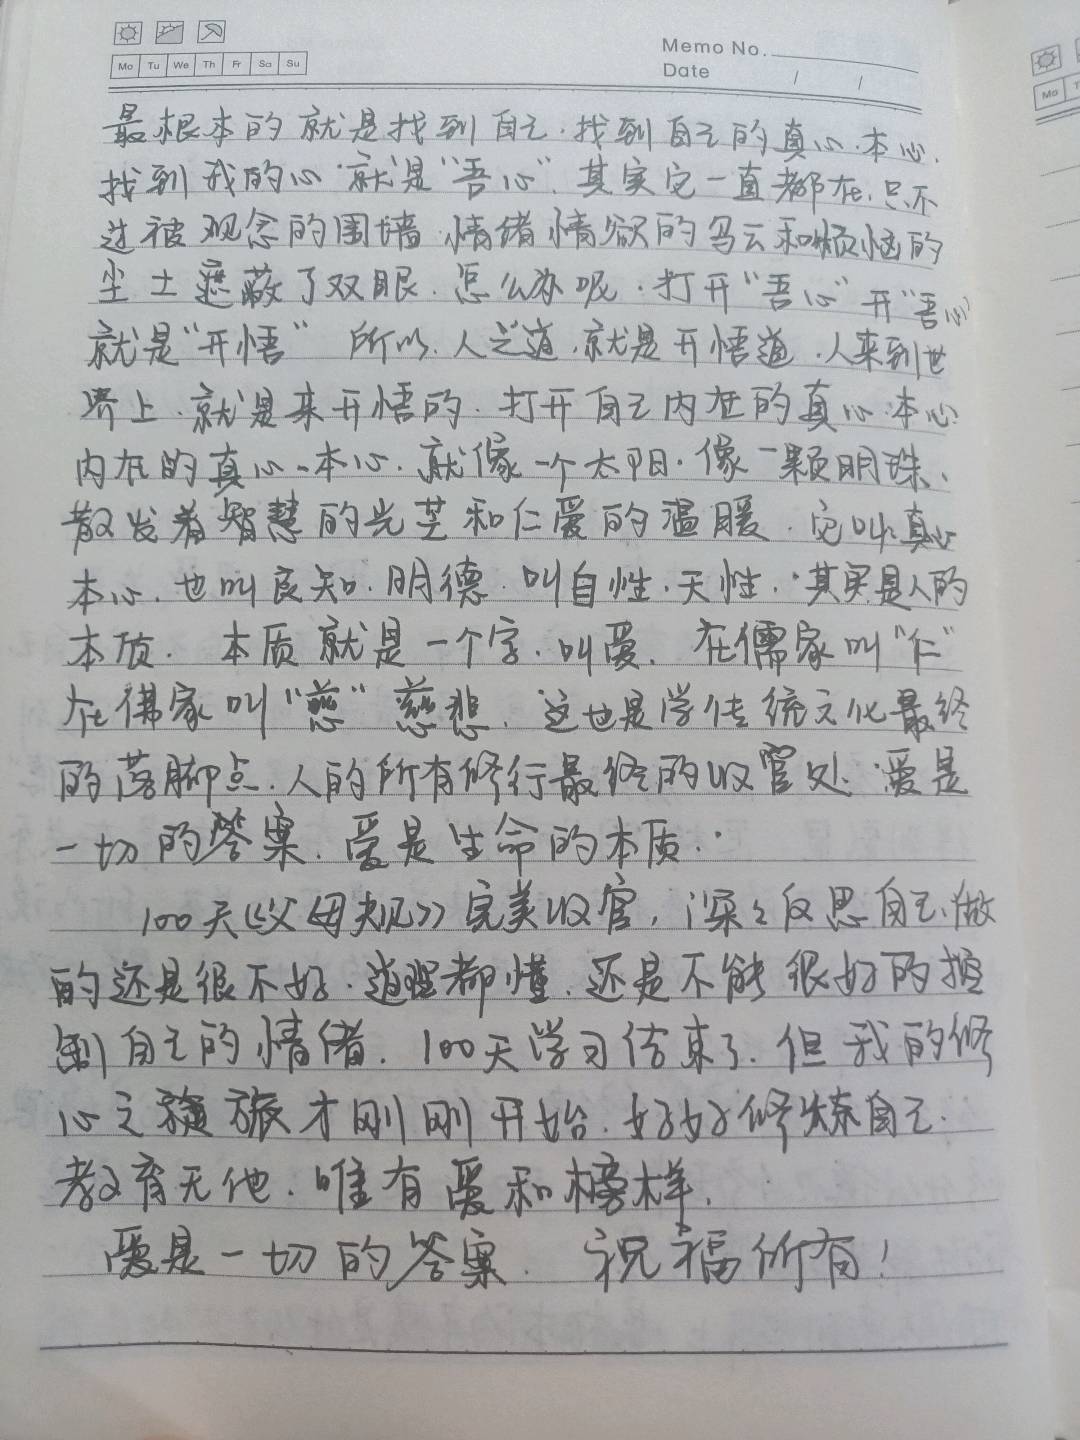 Memo No.
Mo Tu We Th Fr Sa Su
Date / /
Mo
最根本的就是找到自己.找到自己的真心.本心.
找到我的心.就是"吾心".其实它一直都在.只不
过被观念的围墙.情绪情欲的乌云和烦恼的
尘土遮蔽了双眼.怎么办呢.打开"吾心"开"吾心"
就是"开悟" 所以.人之道.就是开悟道.人来到世
界上.就是来开悟的.打开自己内在的真心.本心.
内在的真心、本心.就像一个太阳.像一颗明珠、
散发着智慧的光芒和仁爱的温暖.它叫真心
本心.也叫良知.明德.叫自性.天性.其实是人的
本质. 本质就是一个字.叫爱.在儒家叫"仁"
在佛家叫"慈"慈悲.这也是学传统文化最终
的落脚点.人的所有修行最终的收官处.爱是
一切的答案.爱是生命的本质.
100天《父母规》完美收官,深々反思自己.做
的还是很不好.道理都懂.还是不能很好的控
制自己的情绪.100天学习结束了.但我的修
心之旅才刚刚开始.好好修炼自己.
教育无他.唯有爱和榜样.
爱是一切的答案. 祝福所有!